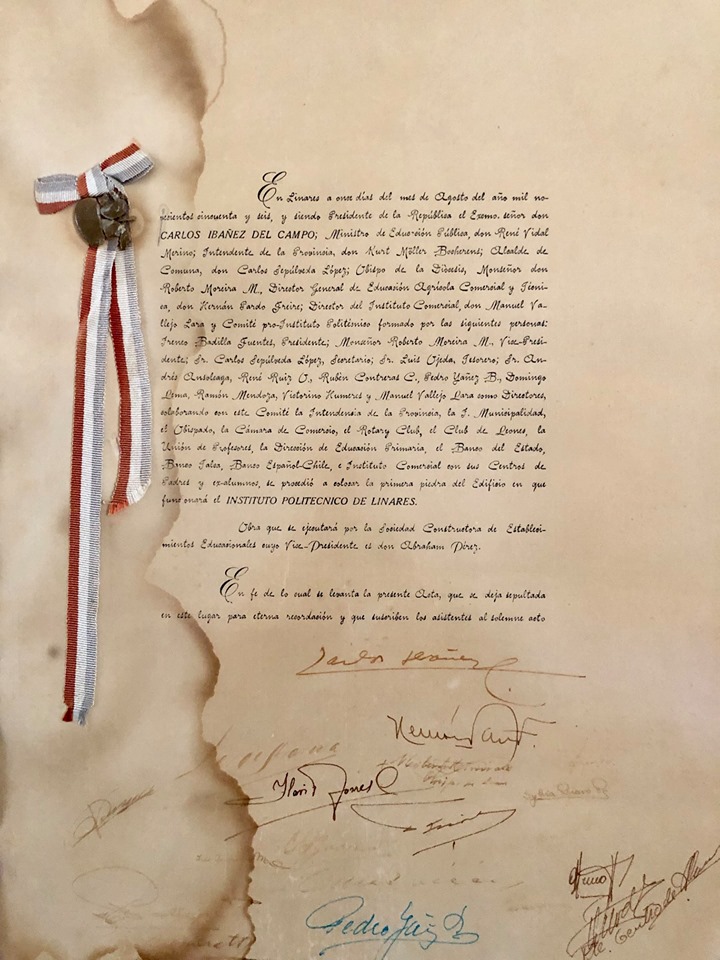 En Linares a once días del mes de Agosto del año mil no-
vecientos cincuenta y seis, y siendo Presidente de la República el Excmo. señor don
CARLOS IBAÑEZ DEL CAMPO; Ministro de Educación Pública, don René Vidal
Merino; Intendente de la Provincia, don Kurt Möller Bocherens; Alcalde de
Comuna, don Carlos Sepúlveda López; Obispo de la Diócesis, Monseñor don
Roberto Moreira M., Director General de Educación Agrícola Comercial y Técni-
ca, don Hernán Pardo Freire; Director del Instituto Comercial, don Manuel Va-
llejo Lara y Comité pro-Instituto Politécnico formado por las siguientes personas:
Ireneo Badilla Fuentes, Presidente; Monseñor Roberto Moreira M., Vice-Presi-
dente; Sr. Carlos Sepúlveda López, Secretario; Sr. Luis Ojeda, Tesorero; Sr. An-
drés Ansoleaga, René Ruiz O., Rubén Contreras C., Pedro Yáñez B., Domingo
Lema, Ramón Mendoza, Victorino Humeres y Manuel Vallejo Lara como Directores,
colaborando con este Comité la Intendencia de la Provincia, la I. Municipalidad,
el Obispado, la Cámara de Comercio, el Rotary Club, el Club de Leones, la
Unión de Profesores, la Dirección de Educación Primaria, el Banco del Estado,
Banco Talca, Banco Español-Chile, e Instituto Comercial con sus Centros de
Padres y ex-alumnos, se procedió a colocar la primera piedra del Edificio en que
funcionará el INSTITUTO POLITECNICO DE LINARES.
Obra que se ejecutará por la Sociedad Constructora de Estableci-
mientos Educacionales cuyo Vice-Presidente es don Abraham Pérez.
En fe de lo cual se levanta la presente Acta, que se deja sepultada
en este lugar para eterna recordación y que suscriben los asistentes al solemne acto
Carlos Ibáñez C
Pedro Yáñ B